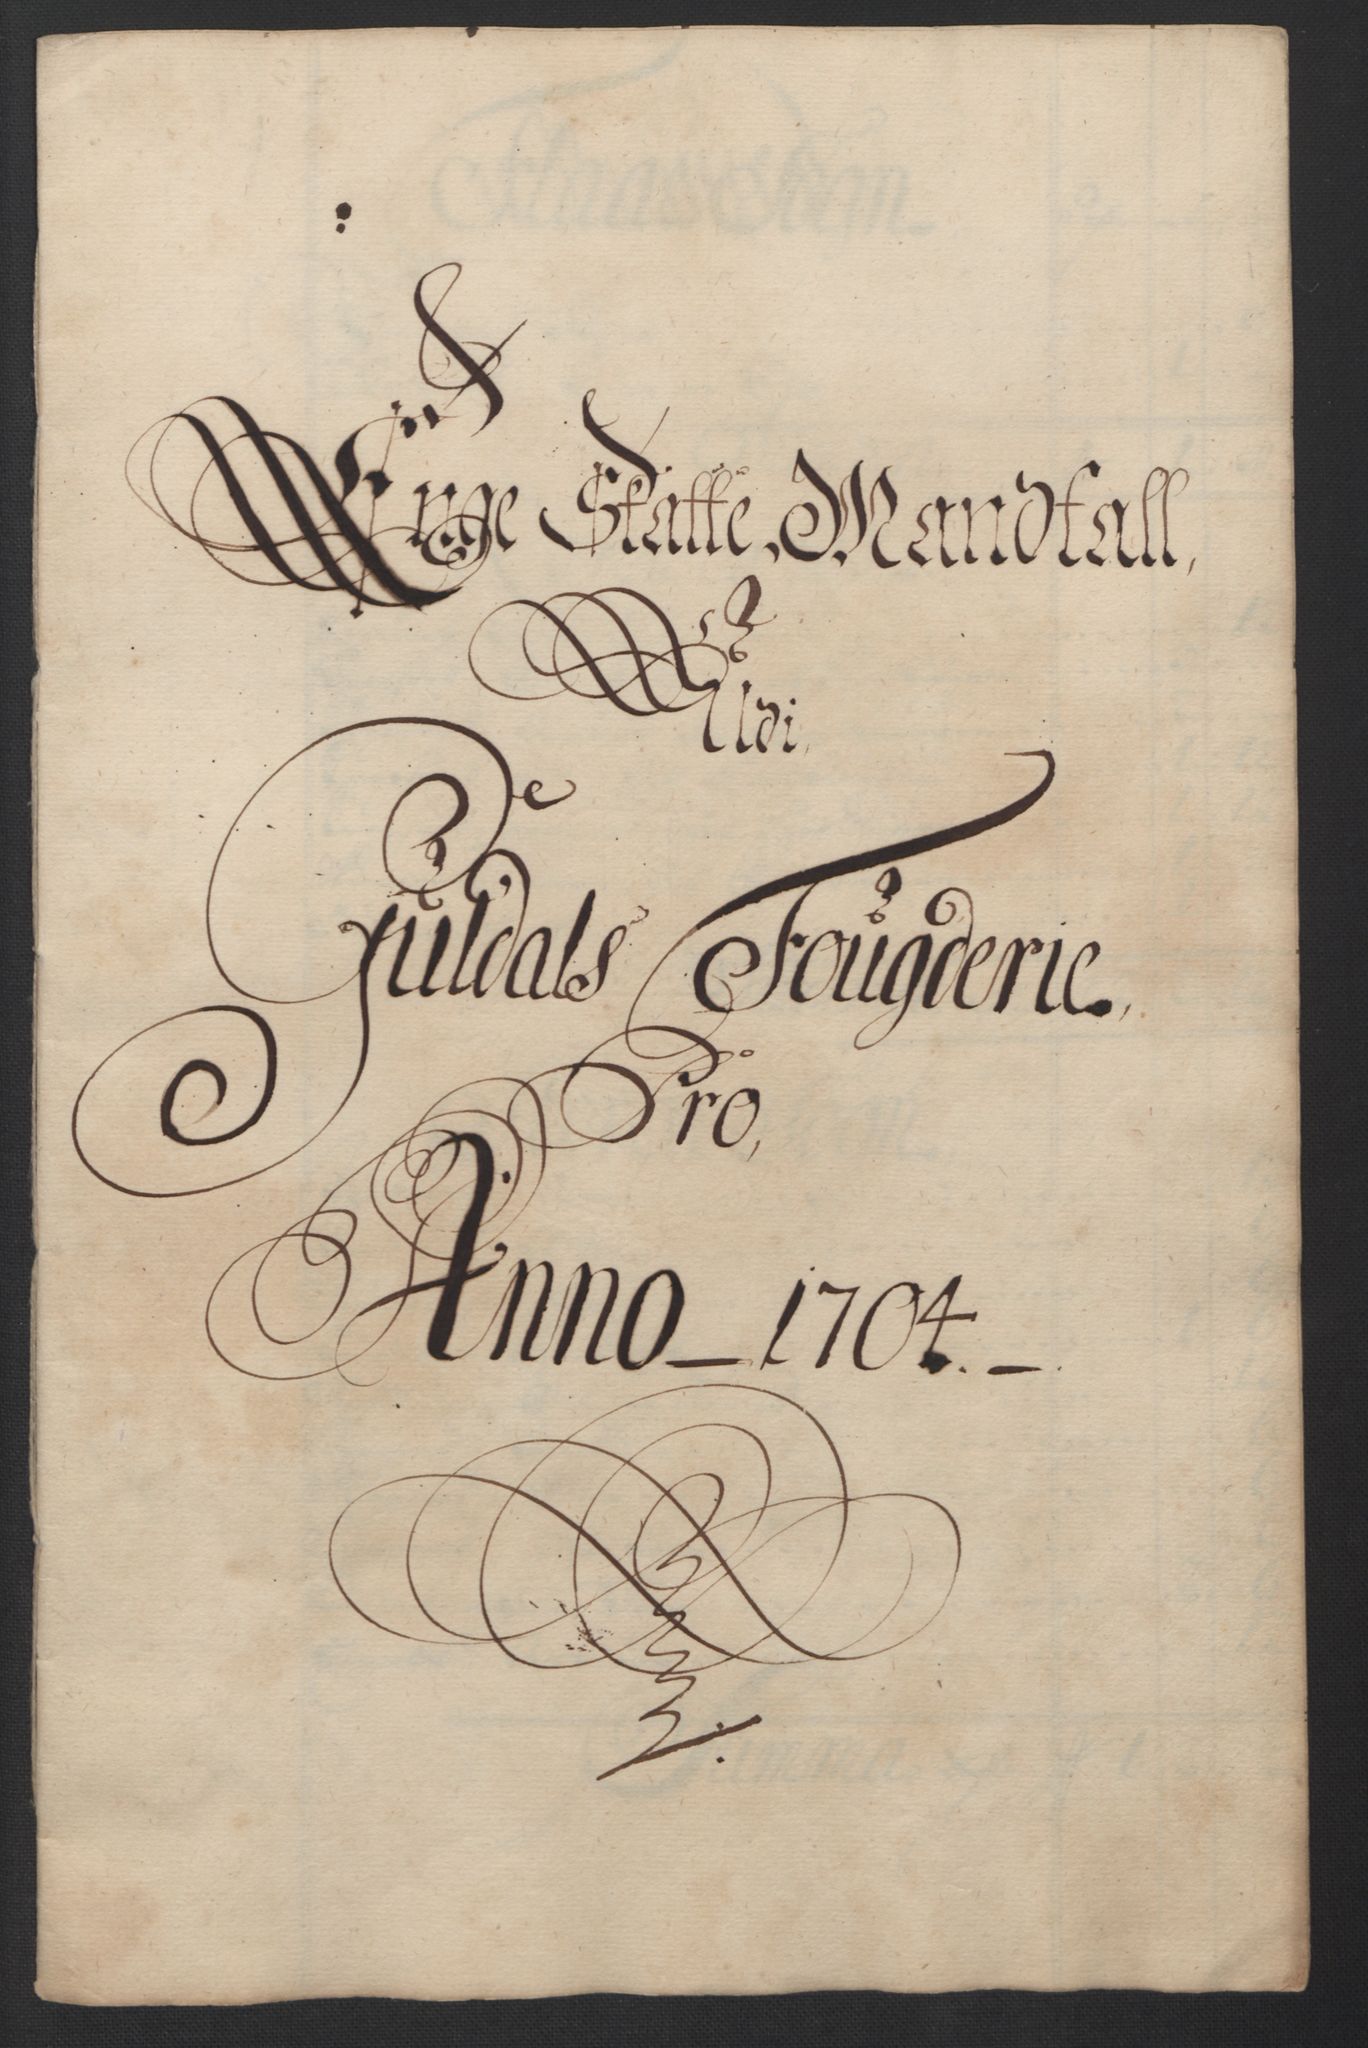 Enge Skatte Mandtall,
Udi,
Guldals Fougderie,
Pro,
Anno 1704.